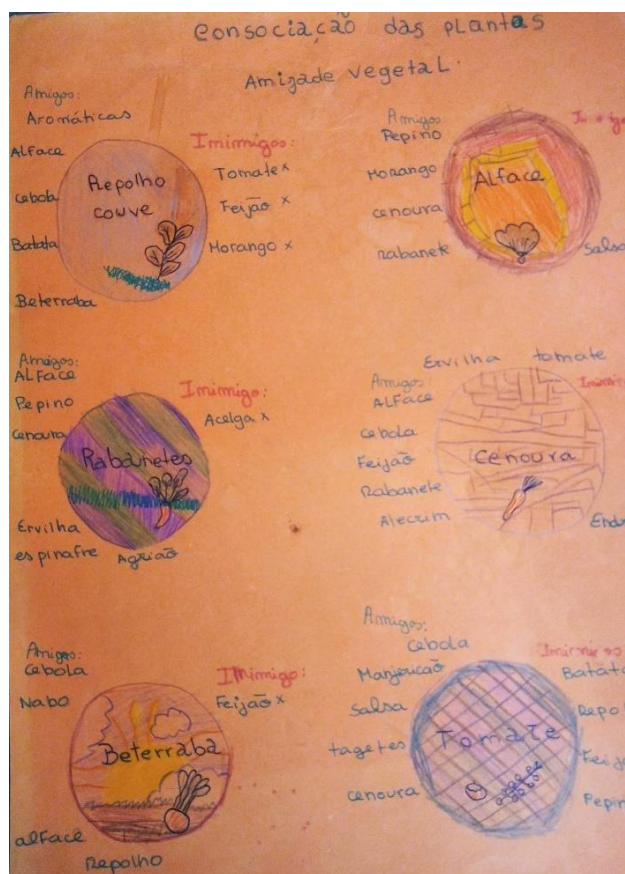 Consociação das plantas
Amizade vegetal.
Amigos:
Aromáticas
Alface
Cebola
Batata
Beterraba
Repolho
couve
Imimigos:
Tomate x
Feijão x
Morango x
Amigos
Pepino
Morango
cenoura
Rabanete
Alface
Salsa
Amigos:
Alface
Pepino
Cenoura
Ervilha
espinafre
Agrião
Rabanetes
Imimigo:
Acelga x
Ervilha tomate
Amigos:
Alface
cebola
Feijão
Rabanete
Alecrim
Cenoura
Amigos:
Cebola
Nabo
alface
Repolho
Beterraba
Imimigo:
Feijão x
Amigos:
Cebola
Manjericão
Salsa
tagetes
cenoura
Tomate
Batata